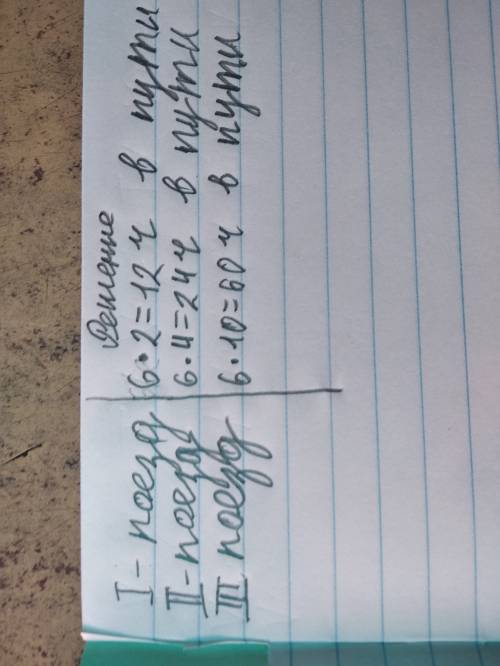 Решение
I - поезд 6·2=12 ч в пути
II - поезд 6·4=24 ч в пути
III поезд 6·10=60 ч в пути